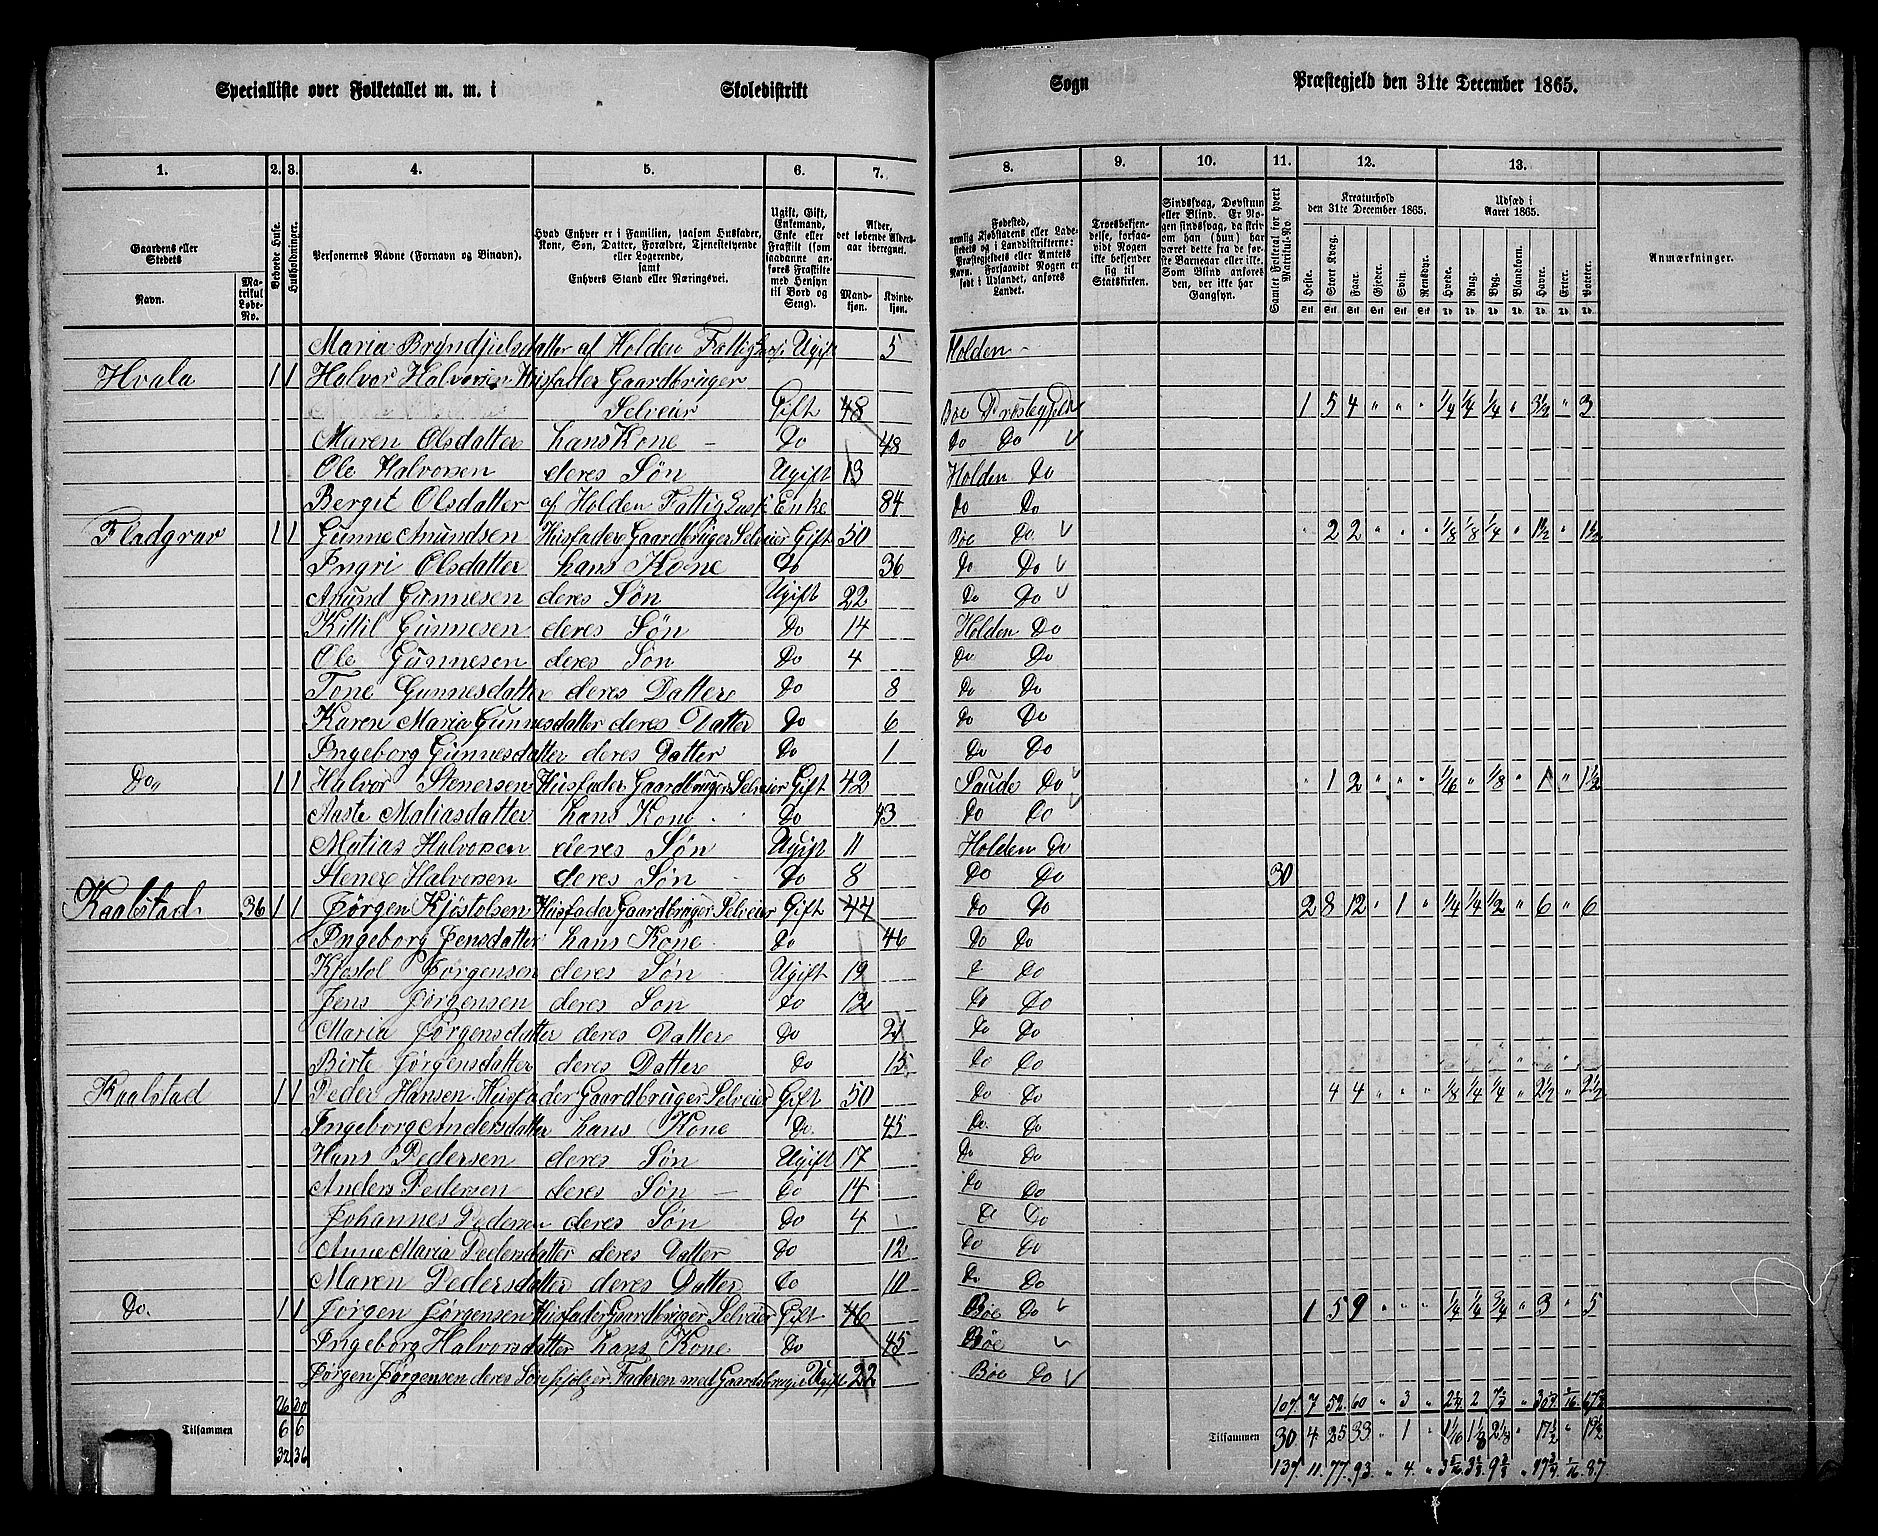 Specialliste over Folketallet m. m. i Skoledistrikt Sogn Præstegjeld den 31te December 1865.
1. 2. 3. 4. 5. 6. 7. 8. 9. 10. 11. 12. 13.
Gaardens eller Stedets
Navn. Matrikul Løbe-No.
Beboede Huse.
Husholdninger.
Personernes Navne (Fornavn og Binavn).
Hvad Enhver er i Familien, saasom Husfader, Kone, Søn, Datter, Forældre, Tjenestetyende eller Logerende, samt Enhvers Stand eller Næringsvei.
Ugift, Gift, Enkemand, Enke eller Fraskilt (som saadanne anføres Fraskilte med Hensyn til Bord og Seng).
Alder, det løbende Alders-aar iberegnet.
Mandkjøn. Kvindekjøn.
Fødested, nemlig Kjøbstadens eller Ladestedets og i Landdistrikterne: Præstegjeldets eller Amtets Navn. Forsaavidt Nogen er født i Udlandet, anføres Landet.
Troesbekjendelse, forsaavidt Nogen ikke bekjender sig til Statskirken.
Sindssvag, Døvstum eller Blind. Er Nogen sindssvag, da skrives om han (hun) har været dette fra de første Barneaar eller ikke. Som Blind anføres den, der ikke har Gangsyn.
Samlet Folketal for hvert Matrikul-No
Kreaturhold den 31te December 1865.
Heste. Stort Kvæg. Faar. Gjeder. Svin. Rensdyr.
Udsæd i Aaret 1865.
Hvede. Rug. Byg. Blandkorn. Havre. Erter. Poteter.
Anmærkninger.
Maria Bryndjulsdatter af Holden Fattigkasse Ugift 5 Holden
Hvala 1 1 Halvor Halvorsen Husfader Gaardbruger
Selveier Gift 48 Bøe Prestegjeld 1 5 4 " " " 1/4 1/4 1/4 " 3 1/2 " 3
Maren Olsdatter hans Kone Do 48 Do Do
Ole Halvorsen deres Søn Ugift 13 Holden Do
Bergit Olsdatter af Holden Fattigkasse Enke 84 Do Do
Fladgrav 1 1 Gunne Anundsen Husfader Gaardbruger Selveier Gift 50 Bøe Do " 2 2 " " " 1/8 1/8 1/4 " 1 1/2 " 1 1/2
Ingri Olsdatter hans Kone Do 36 Do Do
Anund Gunnesen deres Søn Ugift 22 Do Do
Kittil Gunnesen deres Søn Do 14 Holden Do
Ole Gunnesen deres Søn Do 4 Do Do
Tone Gunnesdatter deres Datter Do 8 Do Do
Karen Maria Gunnesdatter deres Datter Do 6 Do Do
Ingeborg Gunnesdatter deres Datter Do 1 Do Do
Do 1 1 Halvor Stenersen Husfader Gaardbruger Selveier Gift 42 Saude Do " 1 2 " " " 1/16 " 1/8 " 1 " 1 1/2
Aaste Matiasdatter hans Kone Do 43 Do Do
Matias Halvorsen deres Søn Ugift 11 Holden Do
Stener Halvorsen deres Søn Do 8 Do Do 30
Kaalstad 36 1 1 Jørgen Kjøstolsen Husfader Gaardbruger Selveier Gift 44 Do Do 2 8 12 " 1 " 1/4 1/4 1/2 " 6 " 6
Ingeborg Jensdatter hans Kone Do 46 Do Do
Kjøstol Jørgensen deres Søn Ugift 19 Do Do
Jens Jørgensen deres Søn Do 12 Do Do
Maria Jørgensdatter deres Datter Do 21 Do Do
Birte Jørgensdatter deres Datter Do 15 Do Do
Kaalstad 1 1 Peder Hansen Husfader Gaardbruger Selveier Gift 50 Do Do 4 4 " " " 1/8 1/4 1/4 " 2 1/2 " 2 1/2
Ingeborg Andersdatter hans Kone Do. 45 Do. Do
Hans Pedersen deres Søn Ugift 17 Do Do
Anders Pedersen deres Søn Do 14 Do Do
Johannes Pedersen deres Søn Do 4 Do Do
Anne Maria Pedersdatter deres Datter Do 12 Do Do
Maren Pedersdatter deres Datter Do 10 Do Do
Do. 1 1 Jørgen Jørgensen Husfader Gaardbruger Selveier Gift 46 Bøe Do 1 5 9 " " " 1/4 1/4 3/4 " 3 " 5
Ingeborg Halvorsdatter hans Kone Do 45 Bøe
Jørgen Jørgensen deres Søn hjelper Faderen med Gaardsbruget Ugift 22 Bøe Do
26 30 107. 7 52. 60 " 3
Tilsammen 6 6 Tilsammen 30 4 25 33 " 1 " 1 1/16 1 1/8 2 1/8 " 17 1/2 " 19 1/2
32 36 137. 11. 77. 93. " 4. " 87